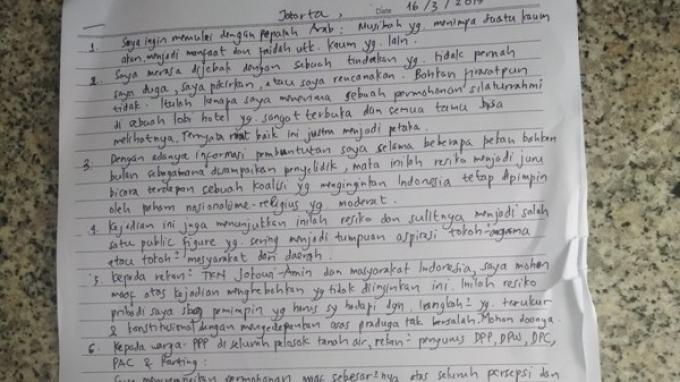 Jakarta, Date 16/3/2019
1. Saya ingin memulai dengan pepatah Arab: Musibah yg. menimpa suatu kaum
akan menjadi manfaat dan faidah utk. kaum yg. lain.
2. Saya merasa dijebak dengan sebuah tindakan yg. tidak pernah
saya duga, saya pikirkan, atau saya rencanakan. Bahkan firasatpun
tidak. Itulah kenapa saya menerima sebuah permohonan silaturrahmi
di sebuah lobi hotel yg. sangat terbuka dan semua tamu bisa
melihatnya. Ternyata niat baik ini justru menjadi petaka.
3. Dengan adanya informasi pembuntutan saya selama beberapa pekan bahkan
bulan sebagaimana disampaikan penyelidik, maka inilah resiko menjadi juru
bicara terdepan sebuah koalisi yg menginginkan Indonesia tetap dipimpin
oleh paham nasionalisme-religius yg moderat.
4. Kejadian ini juga menunjukkan inilah resiko dan sulitnya menjadi salah
satu public figure yg. sering menjadi tumpuan aspirasi tokoh² agama
atau tokoh² masyarakat dari daerah.
5. Kepada rekan² TKN Jokowi-Amin dan masyarakat Indonesia, saya mohon
maaf atas kejadian menghebohkan yg tidak diinginkan ini. Inilah resiko
pribadi saya sbg pemimpin yg harus sy hadapi dgn. langkah² yg. terukur
& konstitusional dengan mengedepankan asas praduga tak bersalah. Mohon doanya.
6. Kepada warga PPP di seluruh pelosok tanah air, rekan² pengurus DPP, DPW, DPC,
PAC & Ranting:
Saya menyampaikan permohonan maaf sebesar²nya atas seluruh persepsi dan